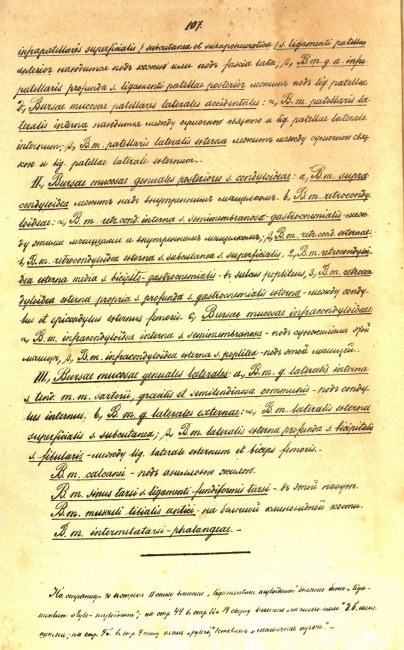 107.
infrapatellaris superficialis / subcutanea et subaponeurotica / s. ligamenti patellae
anterior находится подъ кожею или подъ fascia lata, β, B. m. g. a. infra-
patellaris profunda s. ligamenti patellae posterior лежитъ подъ lig. patellae
Bursae mucosae patellares laterales accidentales: α, B. m. patellaris la-
teralis interna находится между сумочною связкою и lig. patellae laterale
internum; β, B. m. patellaris lateralis externa лежитъ между сумочною свяс-
кою и lig. patellae laterale externum.
II, Bursae mucosae genuales posteriores s. condyloideae: a, B. m. supra-
condyloidea лежитъ надъ внутреннимъ мыщелкомъ. b, B. m. retrocondy-
loideae: α, B. m. retrcond. interna s. semimembranoso-gastrocnemialis - меж-
ду этими мышцами и внутреннимъ мыщелкомъ; β, B. m. retrcond. externae:
1, B. m. retrocondyloidea externa s. subcutanea s. superficialis, 2, B. m. retrocondyloi-
dea externa media s. bicipito-gastrocnemialis - въ sulcus popliteus, 3, B. m. retrcon-
dyloidea externa propria s. profunda s. gastrocnemialis externa - между condy-
lus et epicondylus externus femoris. c, Bursae mucosae infracondyloideae:
α, B. m. infracondyloidea interna s. semimembranosa - подъ сухожиліемъ этой
мышцы, β, B. m. infracondyloidea externa s. poplitea - подъ этой мышцей.
III, Bursae mucosae genuales laterales: a, B. m. g. lateralis interna
s. tend. m. m. sartorii, gracilis et semitendinosa communis - подъ condy-
lus internus. b, B. m. g. laterales externae: α, B. m. lateralis externa
superficialis s. subcutanea; β, B. m. lateralis externa profunda s. bicipitalis
s. fibularis - между lig. laterale externum et biceps femoris.
B. m. calcanii - подъ ахилловою жилою.
B. m. sinus tarsi s. ligamenti fundiformis tarsi - въ этой пазухѣ.
B. m. musculi tibialis antici - на большой клиновидной кости.
B. m. intermetatarsi-phalangeae. -
На страницѣ